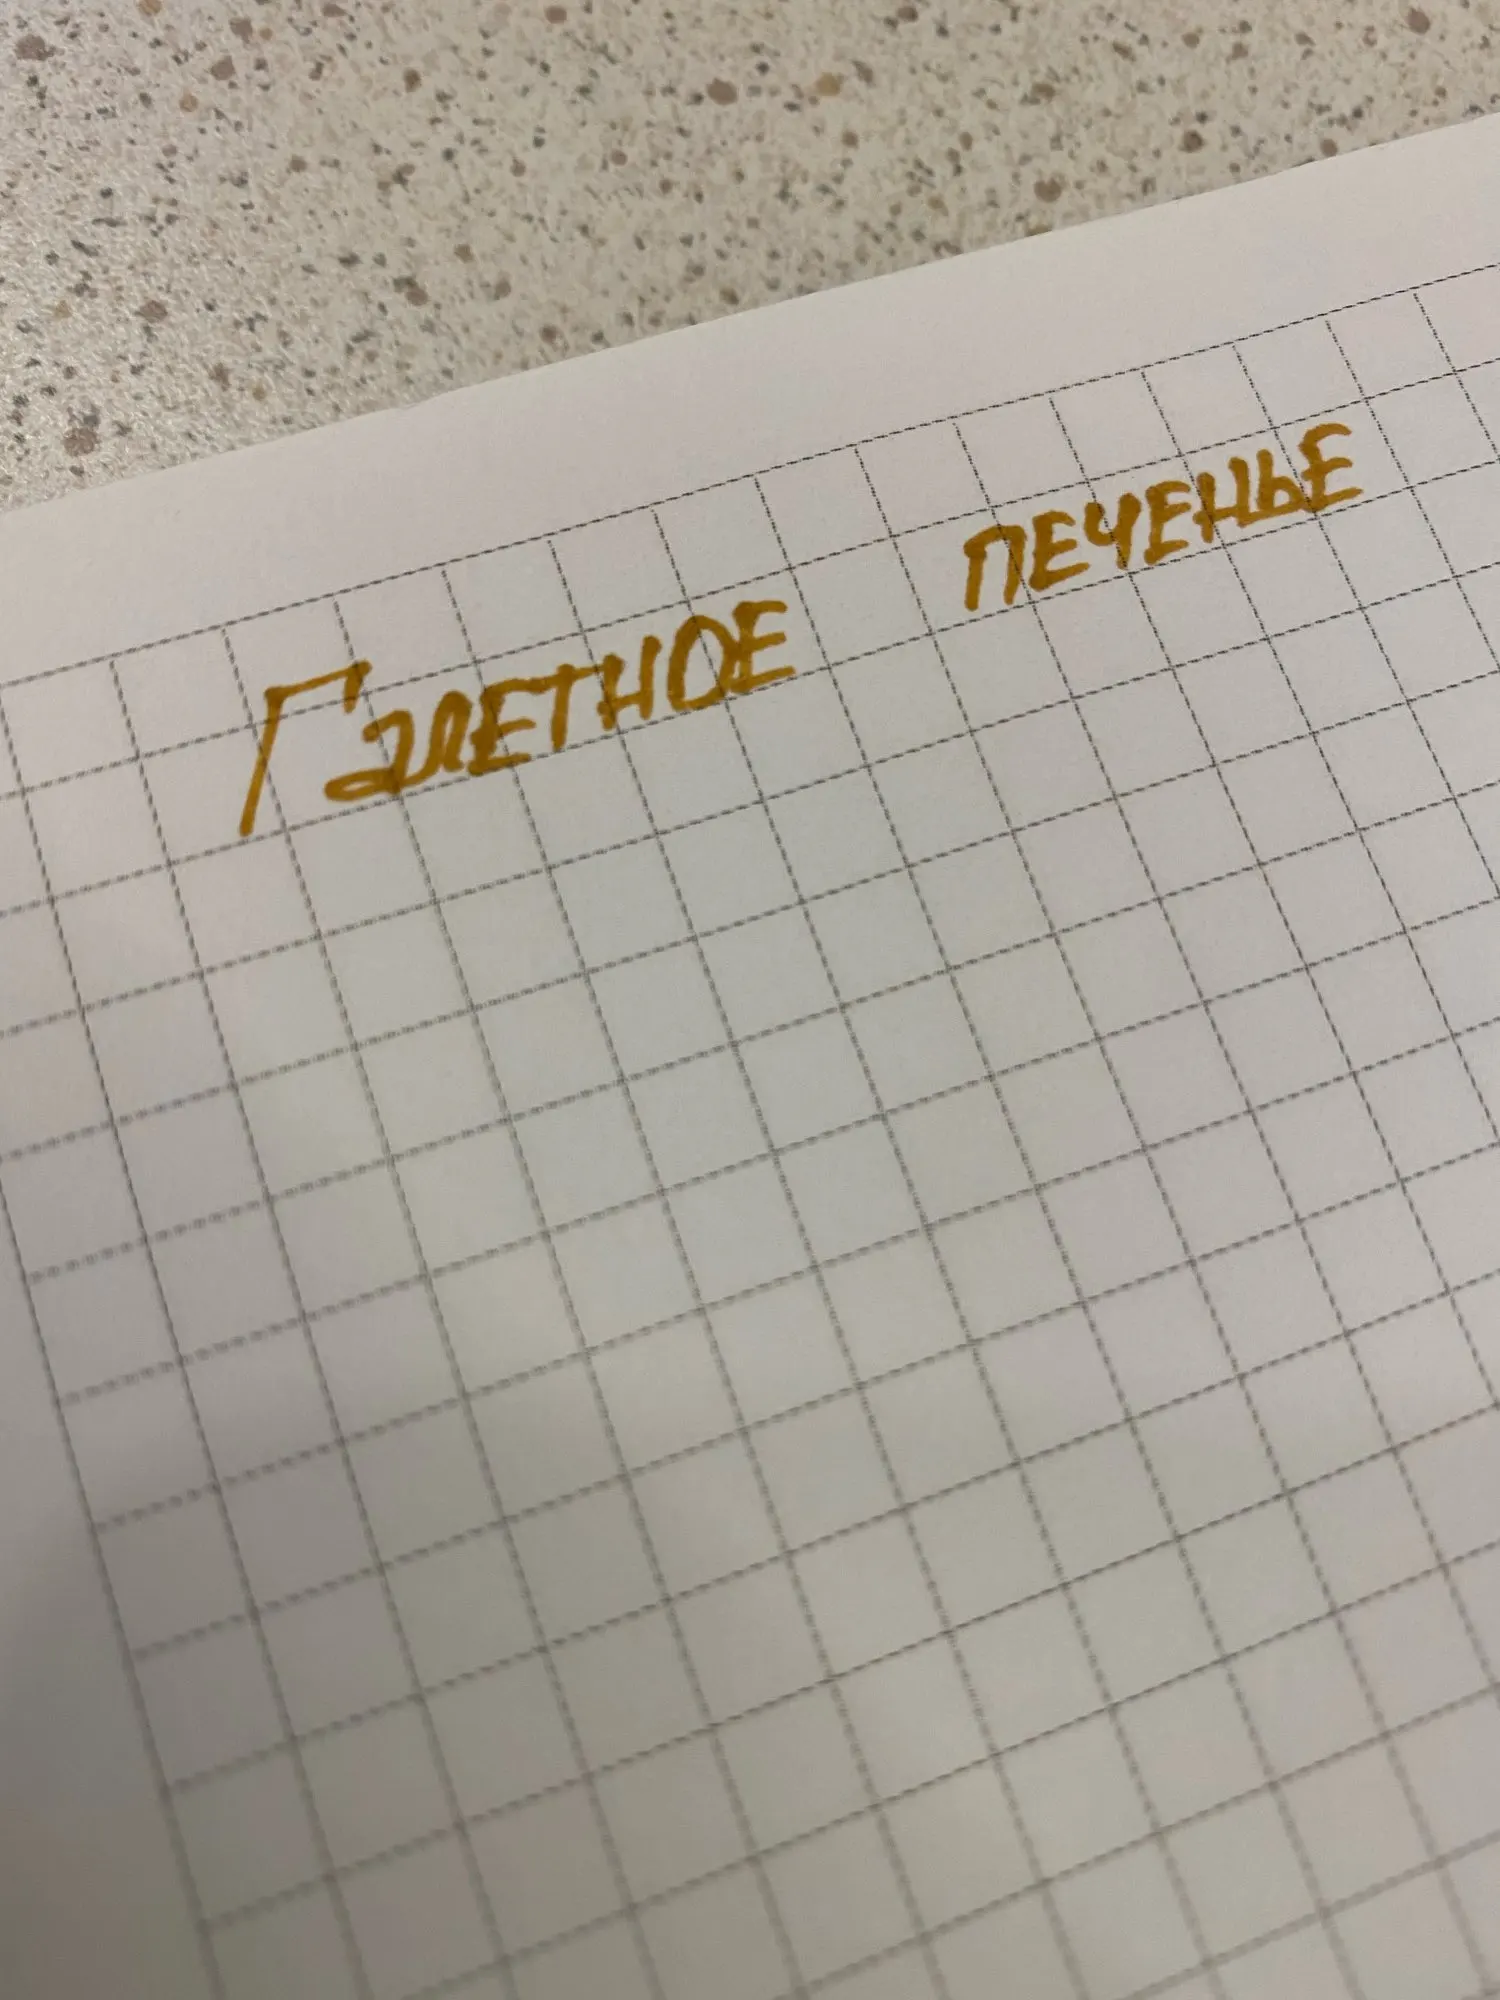 Галетное печенье